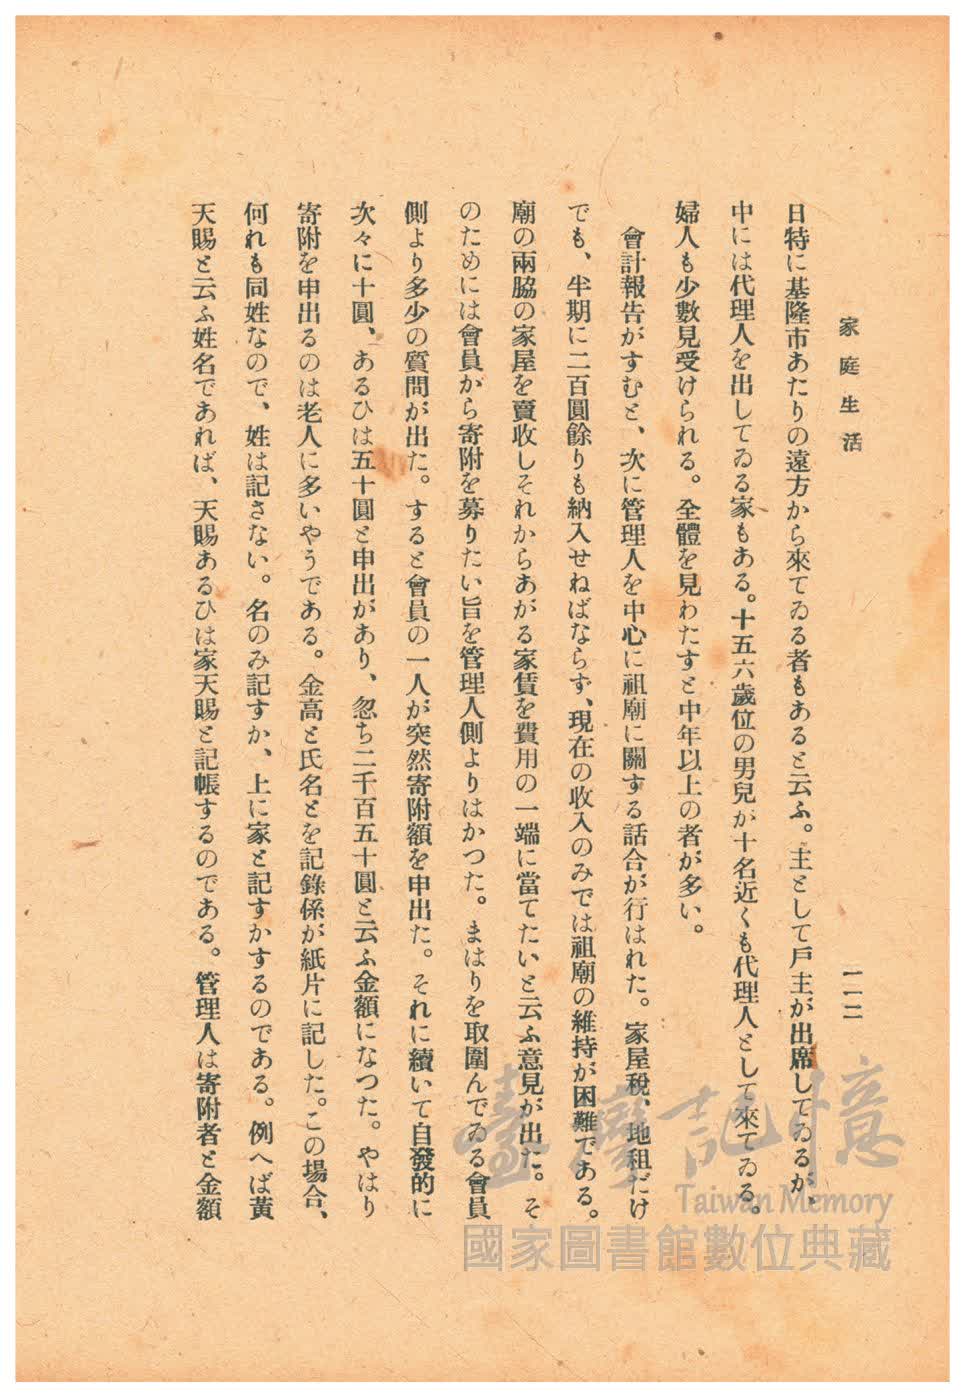 家庭生活
一一二
日特に基隆市あたりの遠方から來てゐる者もあると云ふ。主として戸主が出席してゐるが、
中には代理人を出してゐる家もある。十五六歲位の男兒が十名近くも代理人として來てゐる。
婦人も少數見受けられる。全體を見わたすと中年以上の者が多い。
會計報告がすむと、次に管理人を中心に祖廟に關する話合が行はれた。家屋稅、地租だけ
でも、半期に二百圓餘りも納入せねばならず、現在の收入のみでは祖廟の維持が困難である。
廟の兩脇の家屋を賣收しそれからあがる家賃を費用の一端に當てたいと云ふ意見が出た。そ
のためには會員から寄附を募りたい旨を管理人側よりはかつた。まはりを取圍んでゐる會員
側より多少の質問が出た。すると會員の一人が突然寄附額を申出た。それに續いて自發的に
次々に十圓、あるひは五十圓と申出があり、忽ち二千百五十圓と云ふ金額になつた。やはり
寄附を申出るのは老人に多いやうである。金高と氏名とを記錄係が紙片に記した。この場合、
何れも同姓なので、姓は記さない。名のみ記すか、上に家と記すかするのである。例へば黃
天賜と云ふ姓名であれば、天賜あるひは家天賜と記帳するのである。管理人は寄附者と金額
臺灣記憶
Taiwan Memory
國家圖書館數位典藏